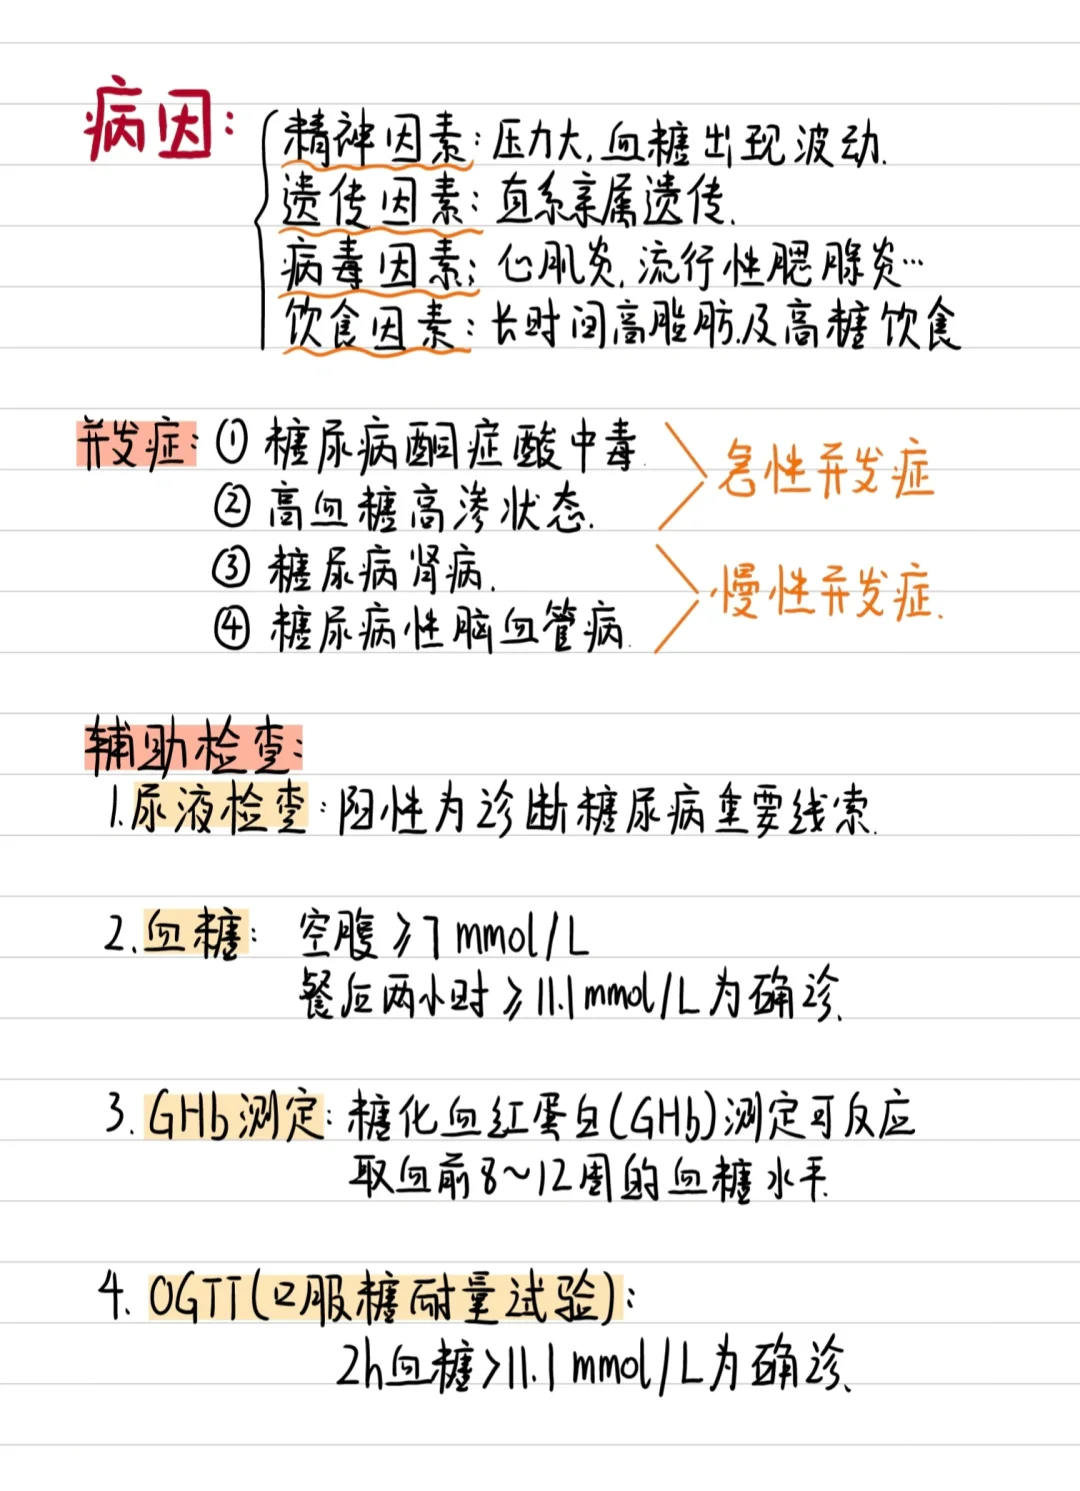 病因:
精神因素:压力大,血糖出现波动.
遗传因素:直系亲属遗传.
病毒因素:心肌炎,流行性腮腺炎…
饮食因素:长时间高脂肪及高糖饮食
并发症:① 糖尿病酮症酸中毒.
② 高血糖高渗状态.
急性并发症
③ 糖尿病肾病.
④ 糖尿病性脑血管病.
慢性并发症.
辅助检查:
1.尿液检查:阳性为诊断糖尿病重要线索.
2.血糖: 空腹≥7mmol/L
餐后两小时≥11.1mmol/L为确诊.
3.GHb测定:糖化血红蛋白(GHb)测定可反应
取血前8~12周的血糖水平.
4.OGTT(口服糖耐量试验):
2h血糖>11.1mmol/L为确诊.